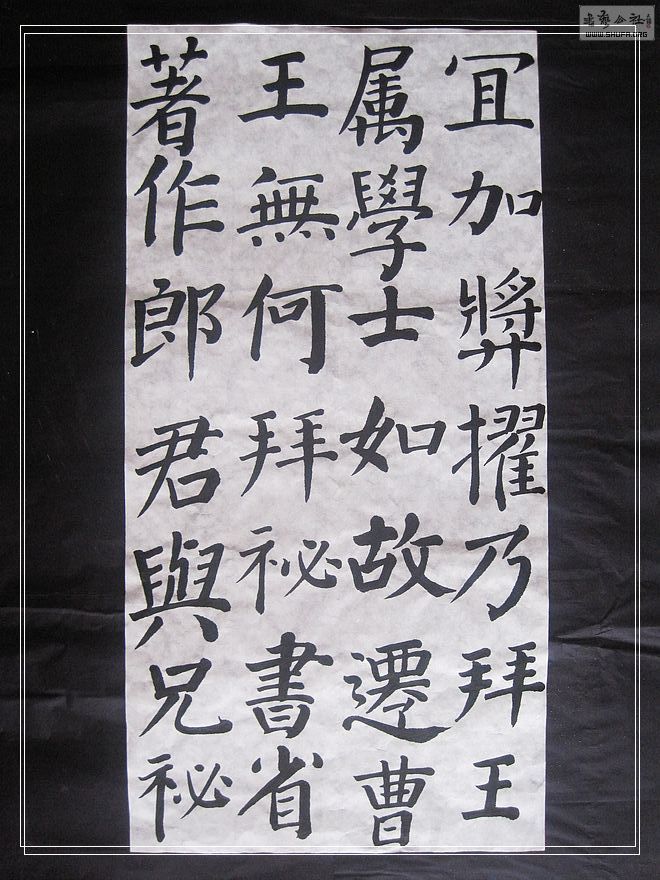 宜加奬擢乃拜王
属學士如故遷曹
王無何拜祕書省
著作郎君與兄祕
WWW.SHUFA.ORG